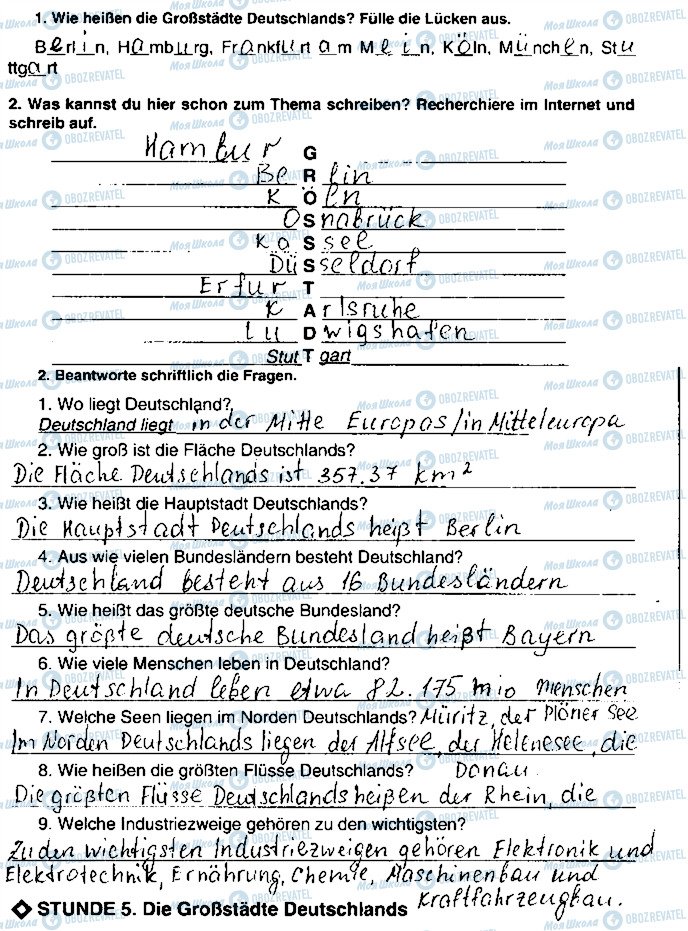 1. Wie heißen die Großstädte Deutschlands? Fülle die Lücken aus.
Berlin, Hamburg, Frankfurt am Mein, Köln, München, Stu
ttgart
2. Was kannst du hier schon zum Thema schreiben? Recherchiere im Internet und
schreib auf.
Hambur G
Be R lin
K Ö ln
O S nabrück
Ka S sel
Dü S seldorf
Erfur T
K A rlsruhe
Lu D wigshafen
Stut T gart
2. Beantworte schriftlich die Fragen.
1. Wo liegt Deutschland?
Deutschland liegt in der Mitte Europas/in Mitteleuropa
2. Wie groß ist die Fläche Deutschlands?
Die Fläche Deutschlands ist 357.37 km²
3. Wie heißt die Hauptstadt Deutschlands?
Die Hauptstadt Deutschlands heißt Berlin
4. Aus wie vielen Bundesländern besteht Deutschland?
Deutschland besteht aus 16 Bundesländern
5. Wie heißt das größte deutsche Bundesland?
Das größte deutsche Bundesland heißt Bayern
6. Wie viele Menschen leben in Deutschland?
In Deutschland leben etwa 82.175 mio menschen
7. Welche Seen liegen im Norden Deutschlands? Müritz, der Plöner See
Im Norden Deutschlands liegen der Alfsee, der Helenesee, die
8. Wie heißen die größten Flüsse Deutschlands? Donau.
Die größten Flüsse Deutschlands heißen der Rhein, die
9. Welche Industriezweige gehören zu den wichtigsten?
Zu den wichtigsten Industriezweigen gehören Elektronik und
Elektrotechnik, Ernährung, Chemie, Maschinenbau und
STUNDE 5. Die Großstädte Deutschlands Kraftfahrzeugbau.
Моя Школа OBOZREVATEL